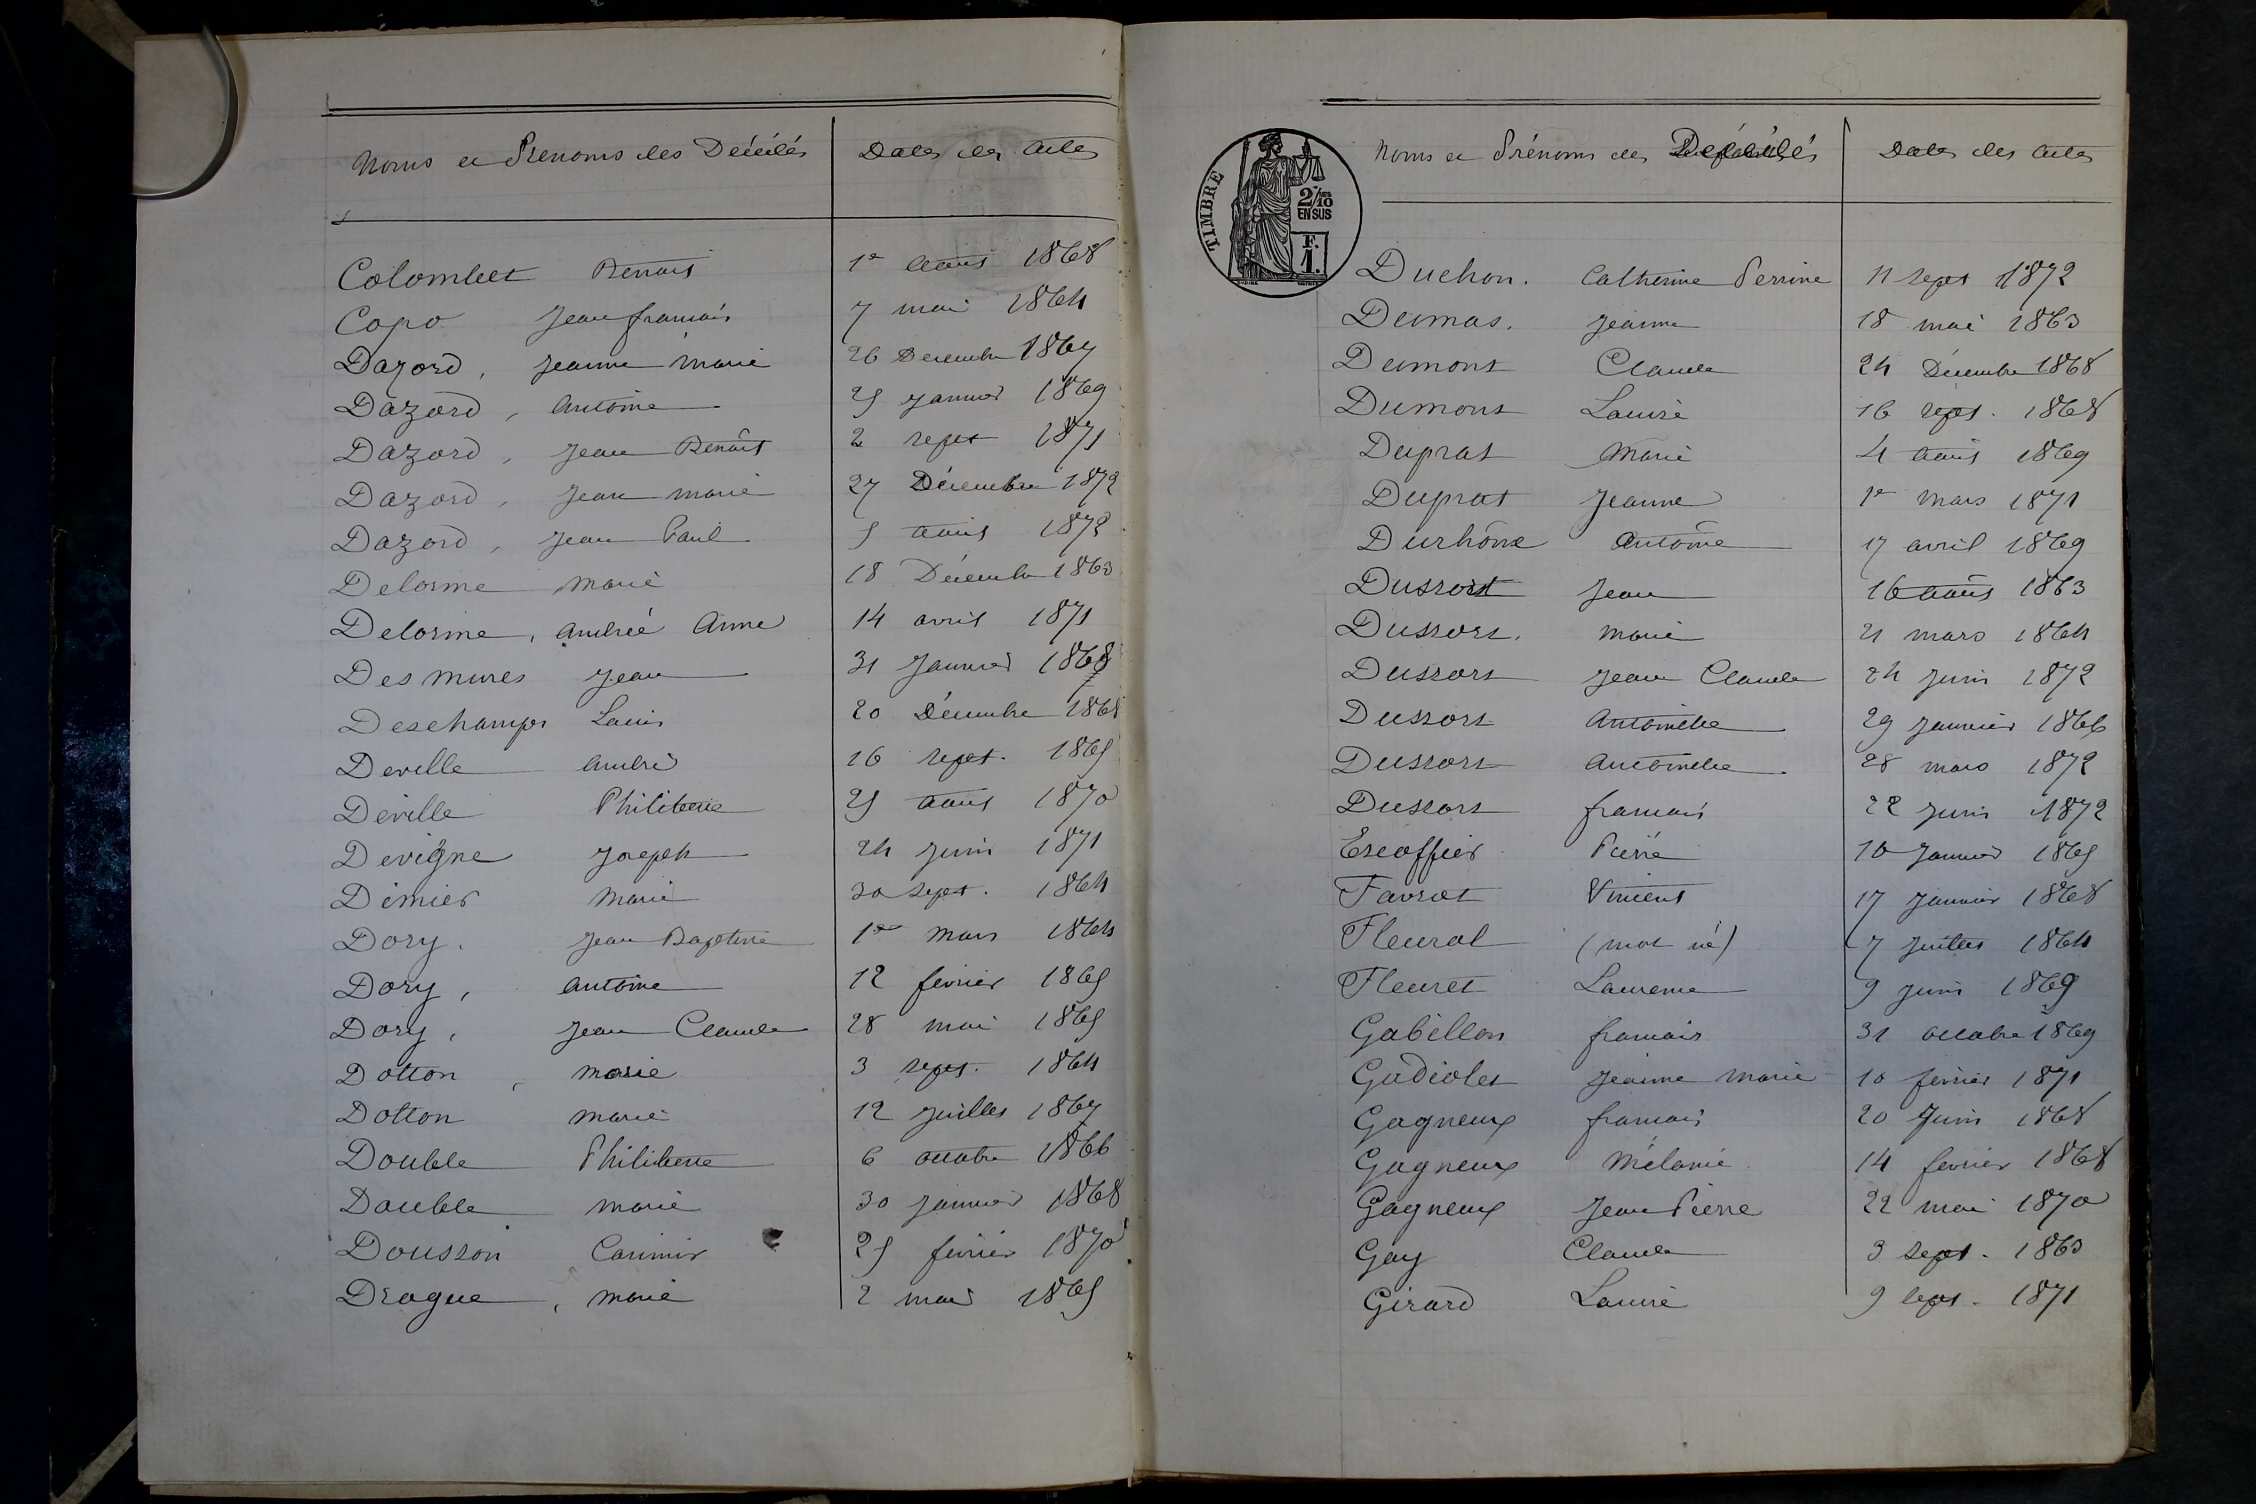 Noms et Prénoms des Décédés Dates des actes
Colombet Benoit 1er Aout 1868
Capo Jean françois 7 mai 1864
Dazord, Jeanne marie 26 Decembre 1867
Dazord, Antoine 25 Janvier 1869
Dazord, Jean Benoît 2 sept 1871
Dazord, Jean marie 27 Décembre 1872
Dazord, Jean Paul 5 aout 1872
Delorme Marie 18 Décembre 1863
Delorme, Andrée Anne 14 avril 1871
Desmures Jean 31 Janvier 1868
Deschamps Louis 20 Décembre 1868
Deville André 16 sept. 1865
Deville Philiberte 25 aout 1870
Devigne Joseph 24 juin 1871
Dimier Marie 30 sept. 1864
Dory. Jean Baptiste 1er Mars 1864
Dory, Antoine 12 février 1865
Dory, Jean Claude 28 mai 1865
Dotton, marie 3 sept. 1864
Dotton marie 12 Juillet 1867
Double Philiberte 6 octobre 1866
Double marie 30 Janvier 1868
Dousson Casimir 25 février 1870
Drague, marie 2 mai 1865
TIMBRE
2/10
EN SUS
F.
1.
Noms et Prénoms des Décédés Dates des actes
Duchon. Catherine Perrine 11 sept 1872
Dumas. Jeanne 18 mai 1863
Dumont Claude 24 Décembre 1868
Dumont Louise 16 sept. 1868
Duprat Marie 4 Aout 1869
Duprat Jeanne 1er mars 1871
Durhône Antoine 17 avril 1869
Dussort Jean 16 août 1863
Dussort. marie 21 mars 1864
Dussort Jean Claude 24 juin 1872
Dussort Antoinette 29 Janvier 1866
Dussort Antoinette 28 mars 1872
Dussort françois 22 Juin 1872
Escoffier Pierre 10 Janvier 1865
Favrot Vincent 17 Janvier 1868
Fleurat (mort né) 7 juillet 1864
Fleuret Laurence 9 juin 1869
Gabillon françois 31 octobre 1869
Gadiolet Jeanne Marie 10 février 1871
Gagneux françois 20 Juin 1868
Gagneux Mélanie 14 fevrier 1868
Gagneux Jean Pierre 22 mai 1870
Gay Claude 3 sept. 1863
Girard Louise 9 sept. 1871